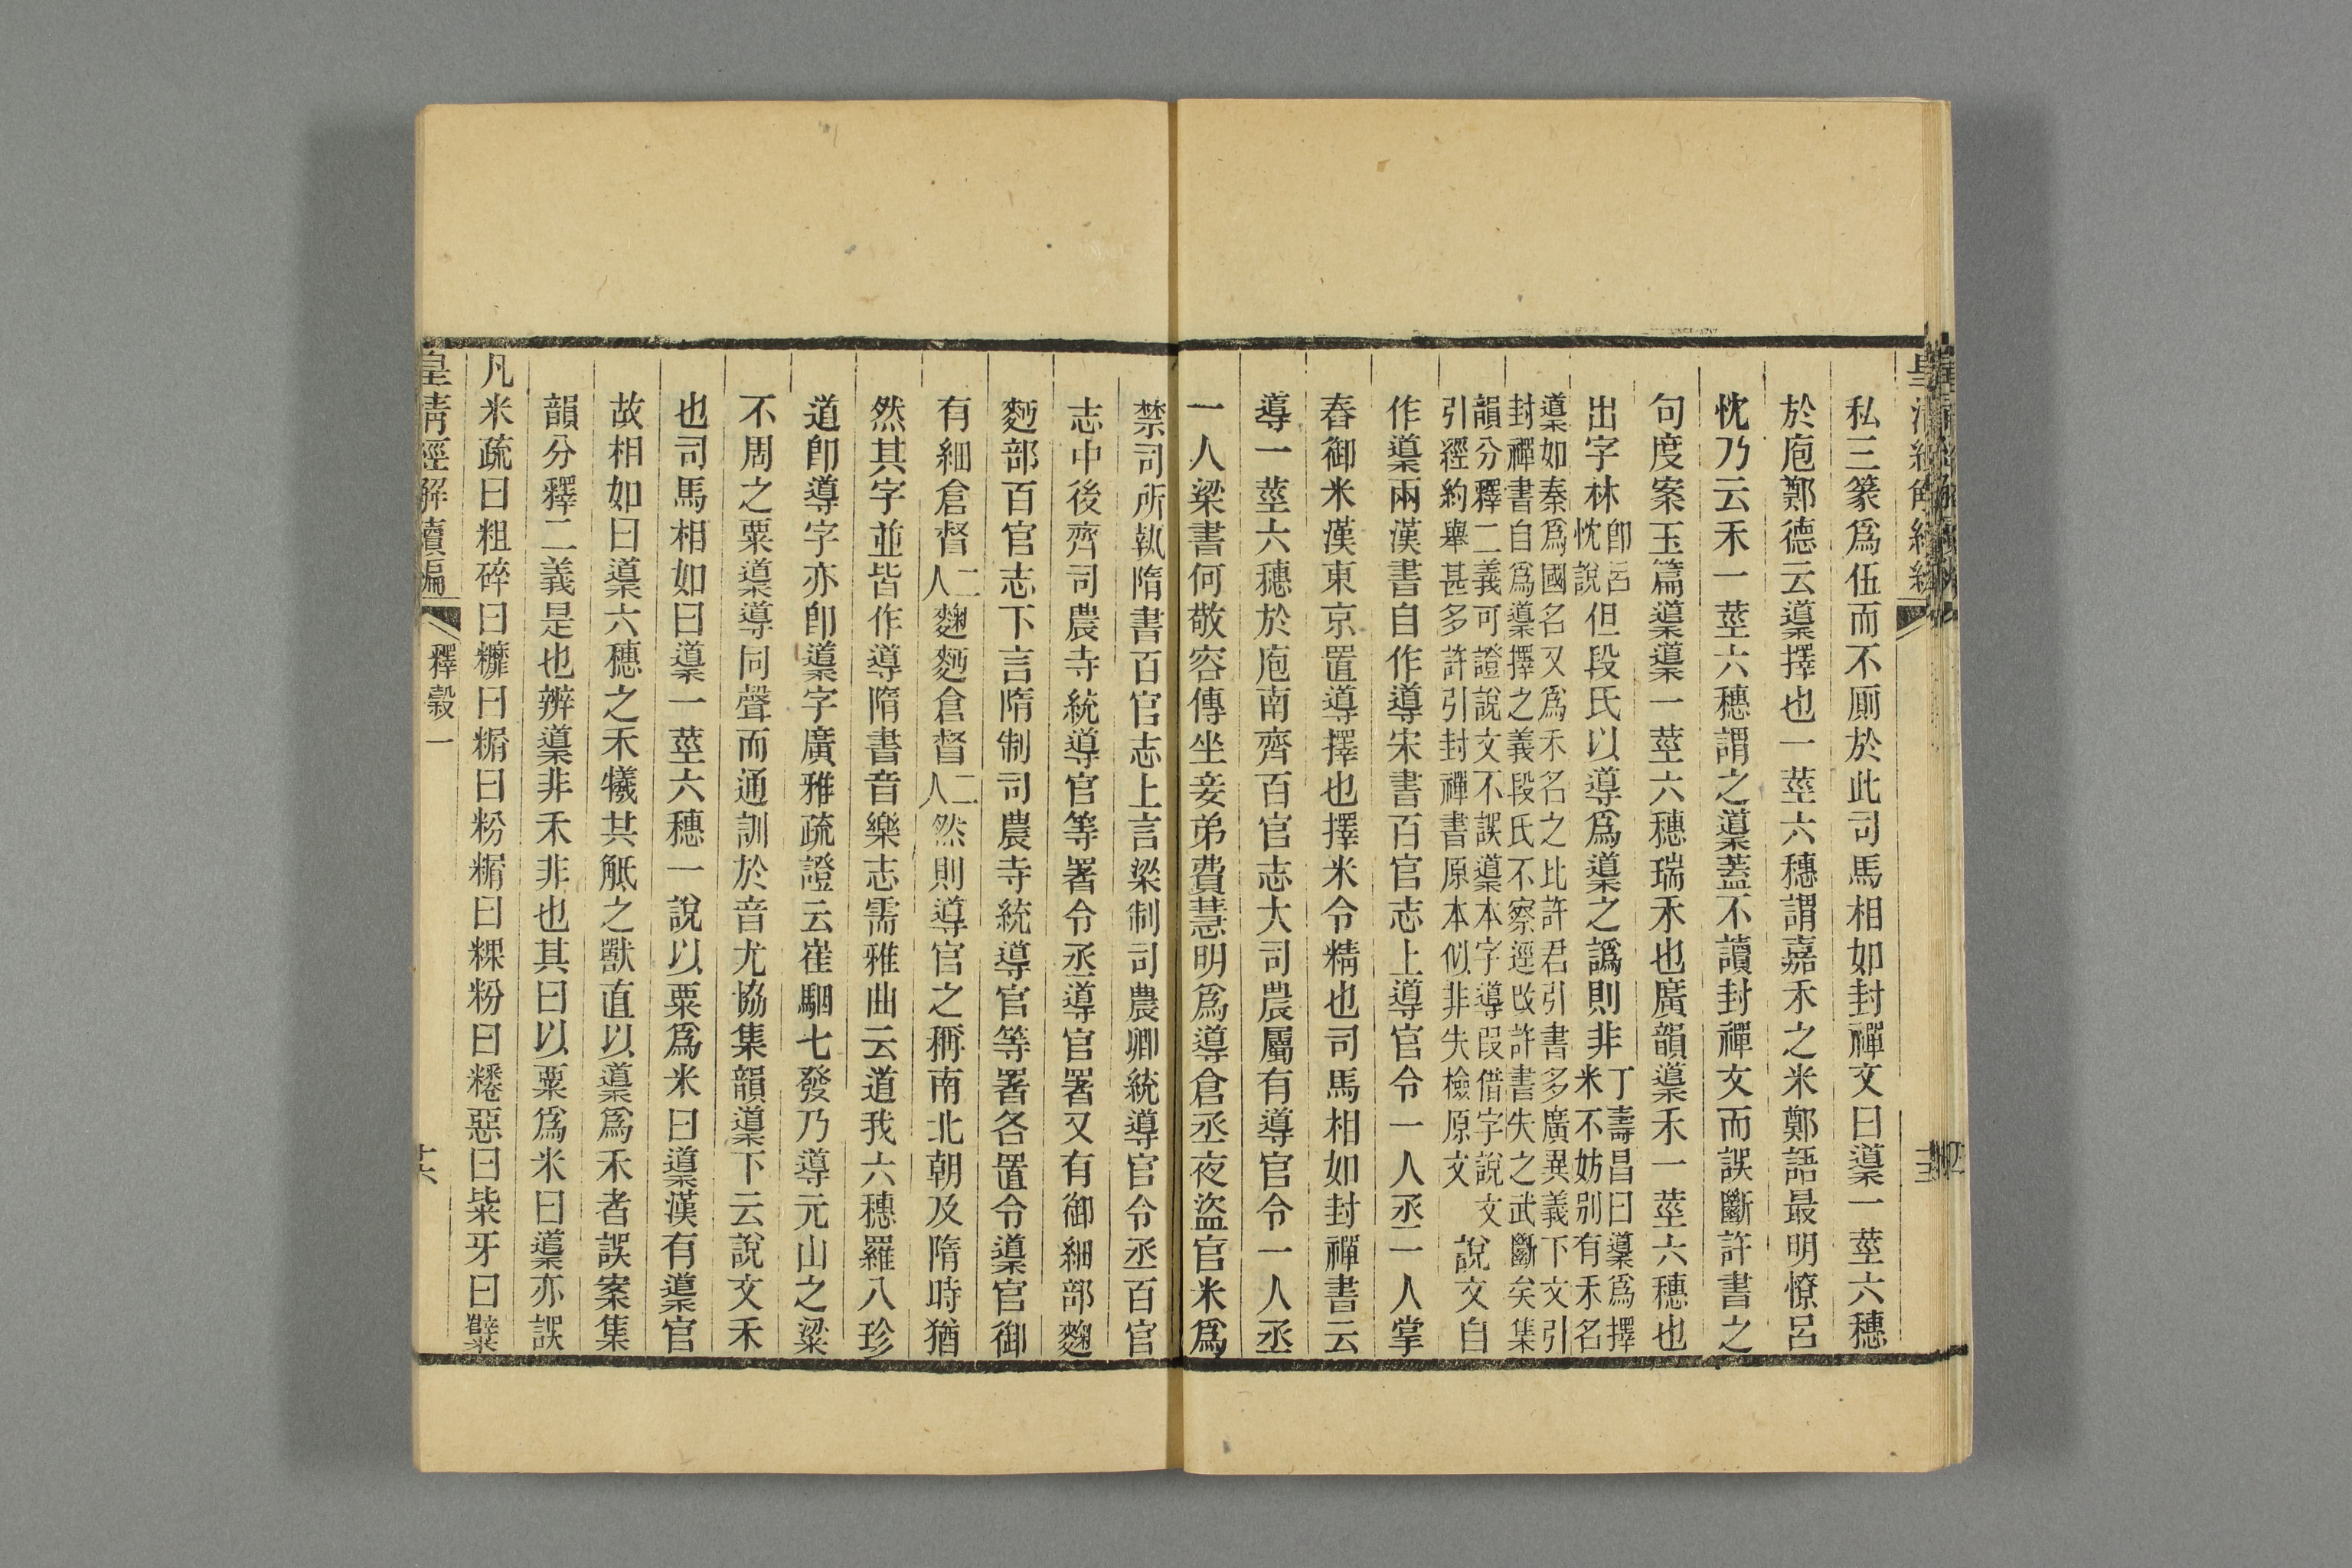 私三篆爲伍而不厠於此司馬相如封禪文曰䆃一莖六穗
於庖鄭德云䆃擇也一莖六穗謂嘉禾之米鄭語最明憭呂
忱乃云禾一莖六穗謂之䆃蓋不讀封禪文而誤斷許書之
句度案玉篇䆃䆃一莖六穗瑞禾也廣韻䆃禾一莖六穗也
出字林卽呂忱說但段氏以導爲䆃之譌則非丁壽昌曰䆃爲擇米不妨别有禾名
䆃如秦爲國名又爲禾名之比許君引書多廣異義下文引
封禪書自爲䆃擇之義段氏不察逕改許書失之武斷矣集
韻分釋二義可證說文不誤䆃本字導叚借字說文
引經約舉甚多許引封禪書原本似非失檢原文
說文自
作䆃兩漢書自作導宋書百官志上導官令一人丞一人掌
舂御米漢東京置導擇也擇米令精也司馬相如封禪書云
導一莖六穗於庖南齊百官志大司農屬有導官令一人丞
一人梁書何敬容傳坐妾弟費慧明爲導倉丞夜盜官米爲
禁司所執隋書百官志上言梁制司農卿統導官令丞百官
志中後齊司農寺統導官等署令丞導官署又有御細部麴
麪部百官志下言隋制司農寺統導官等署各置令䆃官御
有細倉督二人麴麪倉督二人然則導官之稱南北朝及隋時猶
然其字並皆作導隋書音樂志需雅曲云道我六穗羅八珍
道卽導字亦卽䆃字廣雅疏證云崔駰七發乃導元山之粱
不周之粟䆃導同聲而通訓於音尤協集韻䆃下云說文禾
也司馬相如曰䆃一莖六穗一說以粟爲米曰䆃漢有䆃官
故相如曰䆃六穗之禾犧其觝之獸直以䆃爲禾者誤案集
韻分釋二義是也辨䆃非禾非也其曰以粟爲米曰䆃亦誤
凡米疏曰粗碎曰糠曰糏曰粉糏曰粿粉曰粣惡曰粊牙曰糱
皇淸經解續編
釋穀一